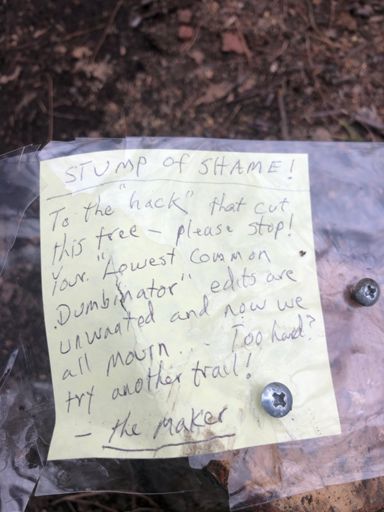 STUMP of SHAME!
To the "hack" that cut
this tree – please stop!
Your "Lowest Common
Dumbinator" edits are
unwanted and now we
all mourn... Too hard?
try another trail!
– the Maker